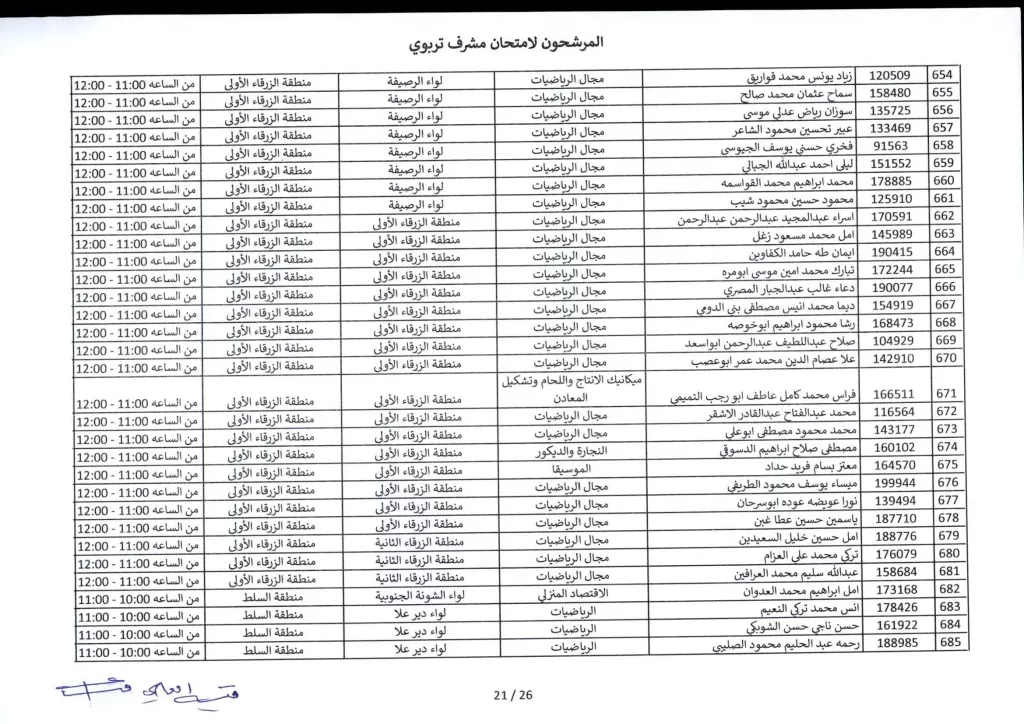 المرشحون لامتحان مشرف تربوي
654 120509 زياد يونس محمد قواريق مجال الرياضيات لواء الرصيفة منطقة الزرقاء الأولى من الساعه 11:00 - 12:00
655 158480 سماح عثمان محمد صالح مجال الرياضيات لواء الرصيفة منطقة الزرقاء الأولى من الساعه 11:00 - 12:00
656 135725 سوزان رياض عدلي موسى مجال الرياضيات لواء الرصيفة منطقة الزرقاء الأولى من الساعه 11:00 - 12:00
657 133469 عبير تحسين محمود الشاعر مجال الرياضيات لواء الرصيفة منطقة الزرقاء الأولى من الساعه 11:00 - 12:00
658 91563 فخري حسني يوسف الجيوسى مجال الرياضيات لواء الرصيفة منطقة الزرقاء الأولى من الساعه 11:00 - 12:00
659 151552 ليلى احمد عبدالله الجبالي مجال الرياضيات لواء الرصيفة منطقة الزرقاء الأولى من الساعه 11:00 - 12:00
660 178885 محمد ابراهيم محمد القواسمه مجال الرياضيات لواء الرصيفة منطقة الزرقاء الأولى من الساعه 11:00 - 12:00
661 125910 محمود حسين محمود شيب مجال الرياضيات لواء الرصيفة منطقة الزرقاء الأولى من الساعه 11:00 - 12:00
662 170591 اسراء عبدالمجيد عبدالرحمن عبدالرحمن مجال الرياضيات منطقة الزرقاء الأولى منطقة الزرقاء الأولى من الساعه 11:00 - 12:00
663 145989 امل محمد مسعود زغل مجال الرياضيات منطقة الزرقاء الأولى منطقة الزرقاء الأولى من الساعه 11:00 - 12:00
664 190415 ايمان طه حامد الكفاوين مجال الرياضيات منطقة الزرقاء الأولى منطقة الزرقاء الأولى من الساعه 11:00 - 12:00
665 172244 تبارك محمد امين موسى ابومره مجال الرياضيات منطقة الزرقاء الأولى منطقة الزرقاء الأولى من الساعه 11:00 - 12:00
666 190077 دعاء غالب عبدالجبار المصري مجال الرياضيات منطقة الزرقاء الأولى منطقة الزرقاء الأولى من الساعه 11:00 - 12:00
667 154919 ديما محمد انيس مصطفى بنى الدومي مجال الرياضيات منطقة الزرقاء الأولى منطقة الزرقاء الأولى من الساعه 11:00 - 12:00
668 168473 رشا محمود ابراهيم ابوخوصه مجال الرياضيات منطقة الزرقاء الأولى منطقة الزرقاء الأولى من الساعه 11:00 - 12:00
669 104929 صلاح عبداللطيف عبدالرحمن ابواسعد مجال الرياضيات منطقة الزرقاء الأولى منطقة الزرقاء الأولى من الساعه 11:00 - 12:00
670 142910 علا عصام الدين محمد عمر ابوعصب مجال الرياضيات منطقة الزرقاء الأولى منطقة الزرقاء الأولى من الساعه 11:00 - 12:00
ميكانيك الانتاج واللحام وتشكيل
671 166511 فراس محمد كامل عاطف ابو رجب التميمي المعادن منطقة الزرقاء الأولى منطقة الزرقاء الأولى من الساعه 11:00 - 12:00
672 116564 محمد عبدالفتاح عبدالقادر الاشقر مجال الرياضيات منطقة الزرقاء الأولى منطقة الزرقاء الأولى من الساعه 11:00 - 12:00
673 143177 محمد محمود مصطفى ابوعلي مجال الرياضيات منطقة الزرقاء الأولى منطقة الزرقاء الأولى من الساعه 11:00 - 12:00
674 160102 مصطفى صلاح ابراهيم الدسوقي النجارة والديكور منطقة الزرقاء الأولى منطقة الزرقاء الأولى من الساعه 11:00 - 12:00
675 164570 معتز بسام فريد حداد الموسيقا منطقة الزرقاء الأولى منطقة الزرقاء الأولى من الساعه 11:00 - 12:00
676 199944 ميساء يوسف محمود الطريفي مجال الرياضيات منطقة الزرقاء الأولى منطقة الزرقاء الأولى من الساعه 11:00 - 12:00
677 139494 نورا عويضه عوده ابوسرحان مجال الرياضيات منطقة الزرقاء الأولى منطقة الزرقاء الأولى من الساعه 11:00 - 12:00
678 187710 ياسمين حسين عطا غبن مجال الرياضيات منطقة الزرقاء الأولى منطقة الزرقاء الأولى من الساعه 11:00 - 12:00
679 188776 امل حسين خليل السعيدين مجال الرياضيات منطقة الزرقاء الثانية منطقة الزرقاء الأولى من الساعه 11:00 - 12:00
680 176079 تركي محمد على العزام مجال الرياضيات منطقة الزرقاء الثانية منطقة الزرقاء الأولى من الساعه 11:00 - 12:00
681 158684 عبدالله سليم محمد العرافين مجال الرياضيات منطقة الزرقاء الثانية منطقة الزرقاء الأولى من الساعه 11:00 - 12:00
682 173168 امل ابراهيم محمد العدوان الاقتصاد المنزلي لواء الشونة الجنوبية منطقة السلط من الساعه 10:00 - 11:00
683 178426 انس محمد تركي النعيم الرياضيات لواء دير علا منطقة السلط من الساعه 10:00 - 11:00
684 161922 حسن ناجي حسن الشوبكي الرياضيات لواء دير علا منطقة السلط من الساعه 10:00 - 11:00
685 188985 رحمه عبد الحليم محمود الصليبي الرياضيات لواء دير علا منطقة السلط من الساعه 10:00 - 11:00
21 / 26